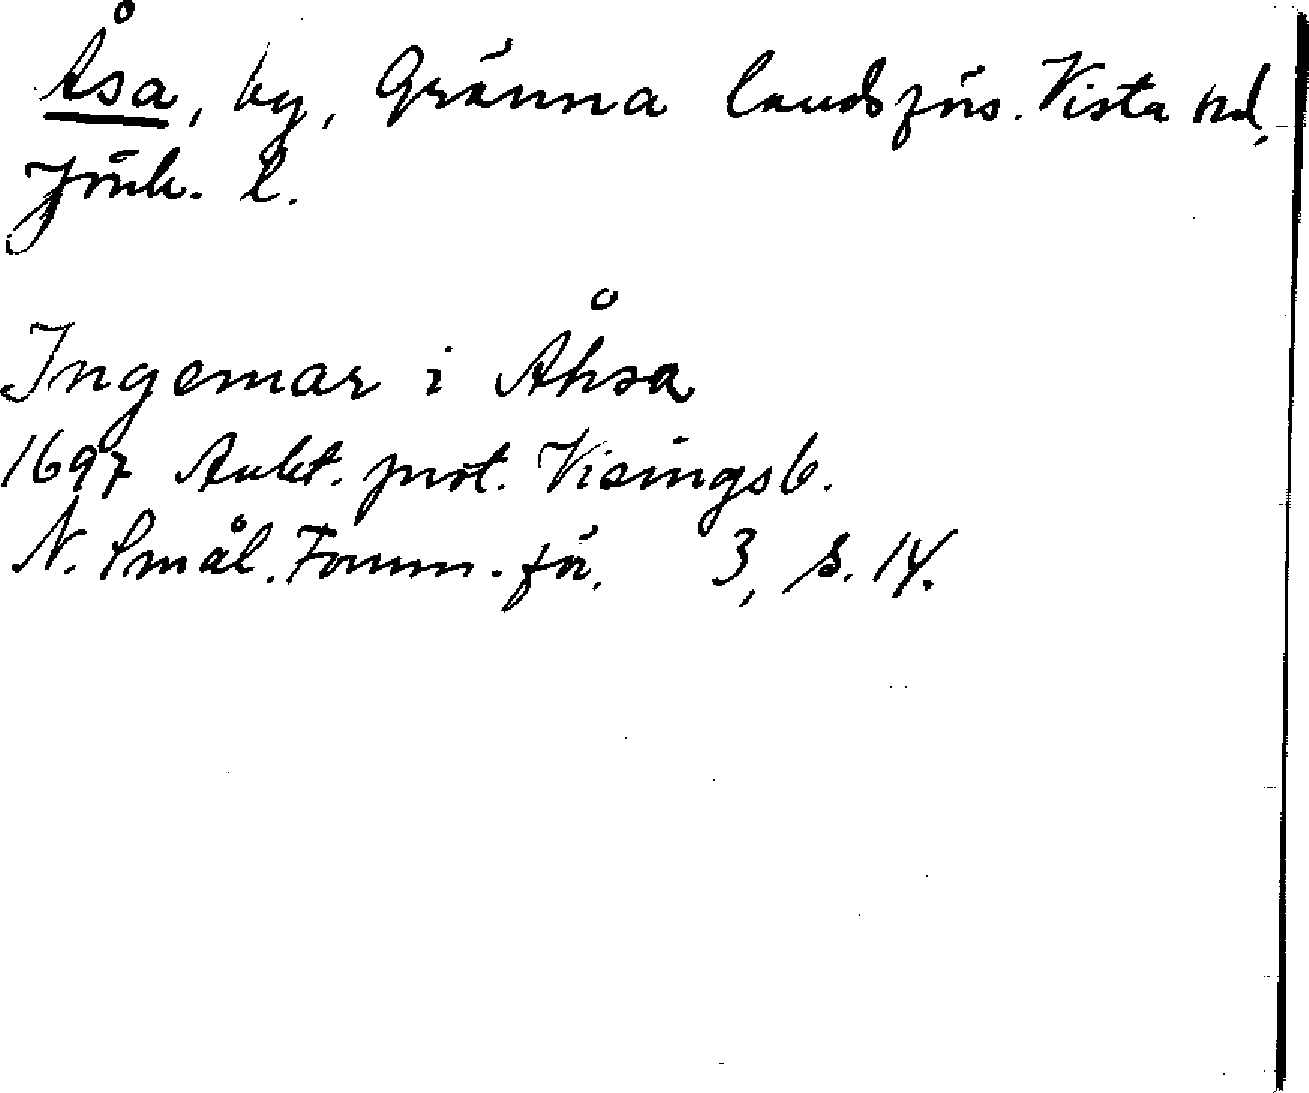 Åsa, by, Gränna landsförs. Vista hd,
Jönk. l.
Ingemar i Åhsa
1697 Aukt. prot. Visingsb.
N. Smål. Fornm. för. 3, s. 14.